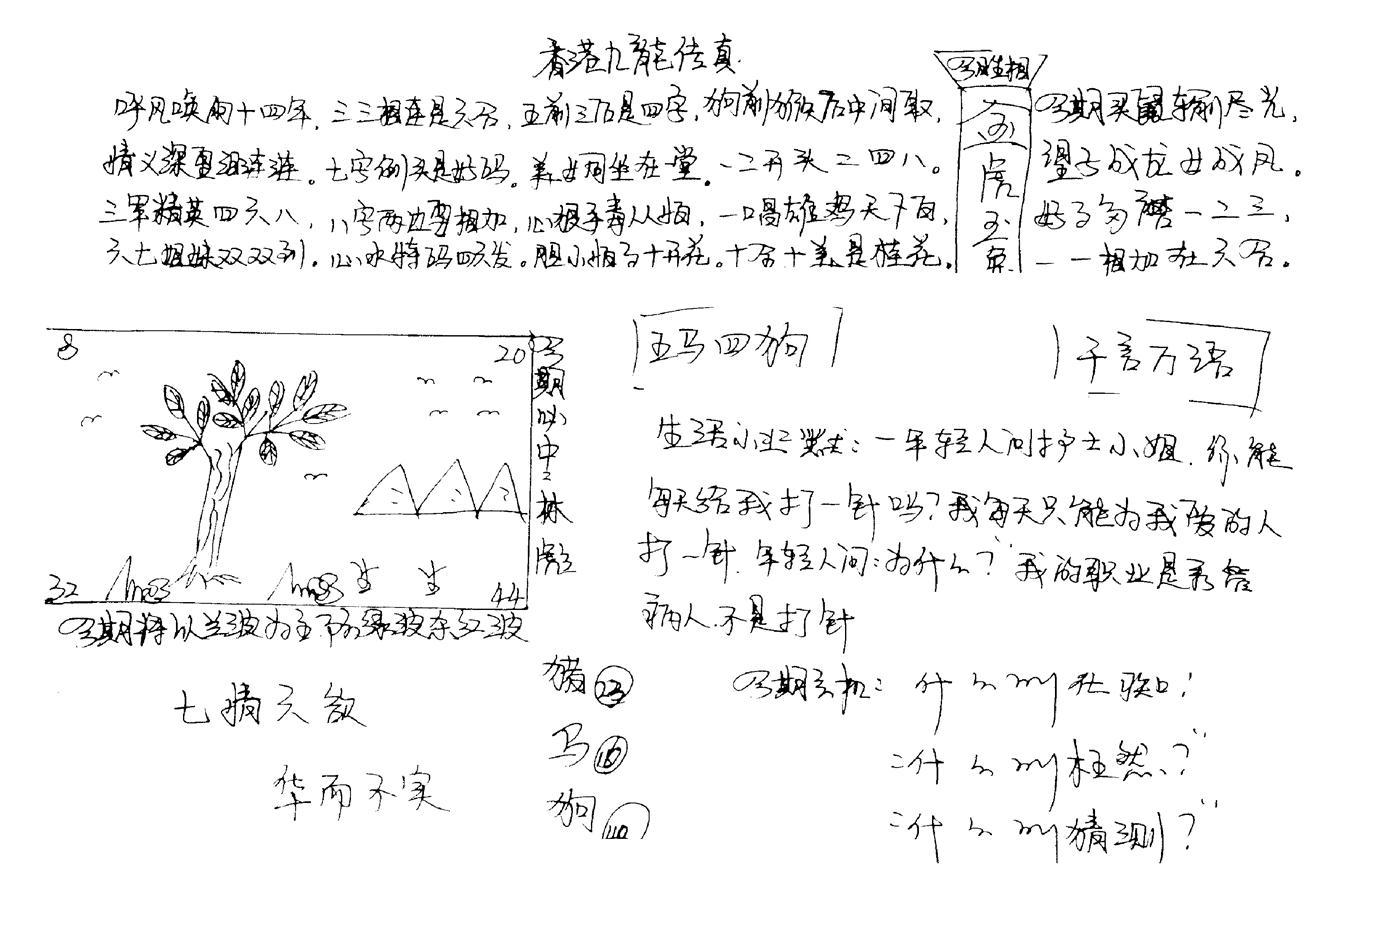 香港九龍传真
今期生相
呼风唤雨十四年,三三相连是六合,五前三后是四字,狗前猴后中间取,
情义深重泪涟涟。七字倒头是好码。美女同坐在堂。一二开头二四八。
三军精英四六八,八字两边要相加,心狠手毒人人怕,一唱雄鸡天下白,
六七姐妹双双到。心水特码四六发。胆小怕马十开花。十全十美是桂花。
虎
今期买 输刑尽光,
望子成龙女成凤。
好了 一二三,
一一相加在六合。
8
20
32
44
今期必中:林
今期将以兰波为主 绿波杀红波
五马四狗
千言万语
生活小 :一年轻人问护士小姐.你能
每天给我打一针吗?我每天只能为我爱的人
打一针.年轻人问:为什么?我的职业是看管
病人.不是打针
七情六欲
华而不实
猪 23
马 16
狗
今期玄机:什么叫 ?
:什么叫枉然?
:什么叫猜测?